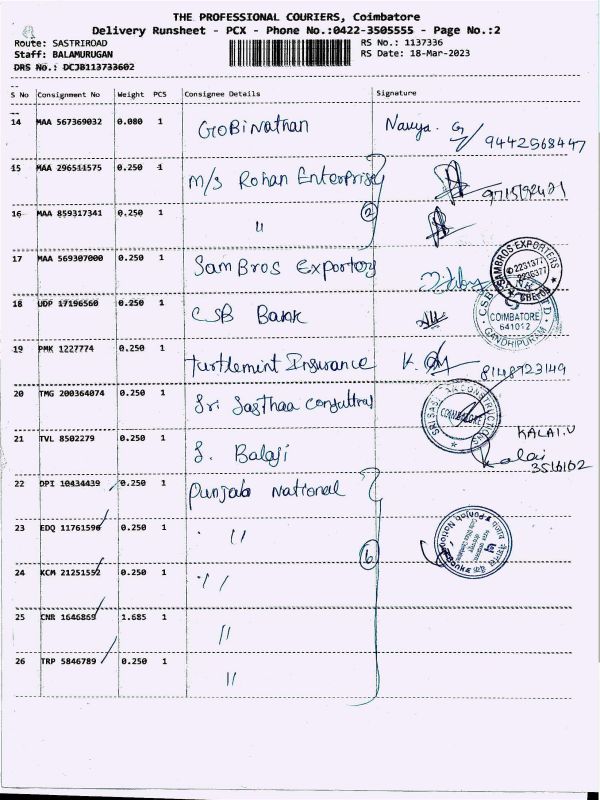 THE PROFESSIONAL COURIERS, Coimbatore
Delivery Runsheet - PCX - Phone No.:0422-3505555 - Page No.:2
Route: SASTRIROAD RS No.: 1137336
Staff: BALAMURUGAN RS Date: 18-Mar-2023
DRS No.: DCJB113733602
S No Consignment No Weight PCS Consignee Details Signature
14 MAA 567369032 0.080 1 GOBINathan Navya. G 9442568447
15 MAA 296511575 0.250 1 M/s Rohan Enterprises
16 MAA 859317341 0.250 1 " 2
17 MAA 569307000 0.250 1 Sam Bros Exporters
SAMBROS EXPORTERS
2231377
2236377
18 UDP 17196560 0.250 1 CSB Bank
COIMBATORE
641012
GANDHIPURAM
19 PMK 1227774 0.250 1 Turtlemint Insurance K. 8148723149
20 TMG 200364074 0.250 1 Sri Sasthaa Consultras
COIMBATORE
21 TVL 8502279 0.250 1 S. Balaji KALAI.U
Kalai
3516102
22 DPI 10434439 0.250 1 Punjab National
23 EDQ 11761596 0.250 1 "
24 KCM 21251552 0.250 1 " 6
25 CNR 1646869 1.685 1 "
26 TRP 5846789 0.250 1 "